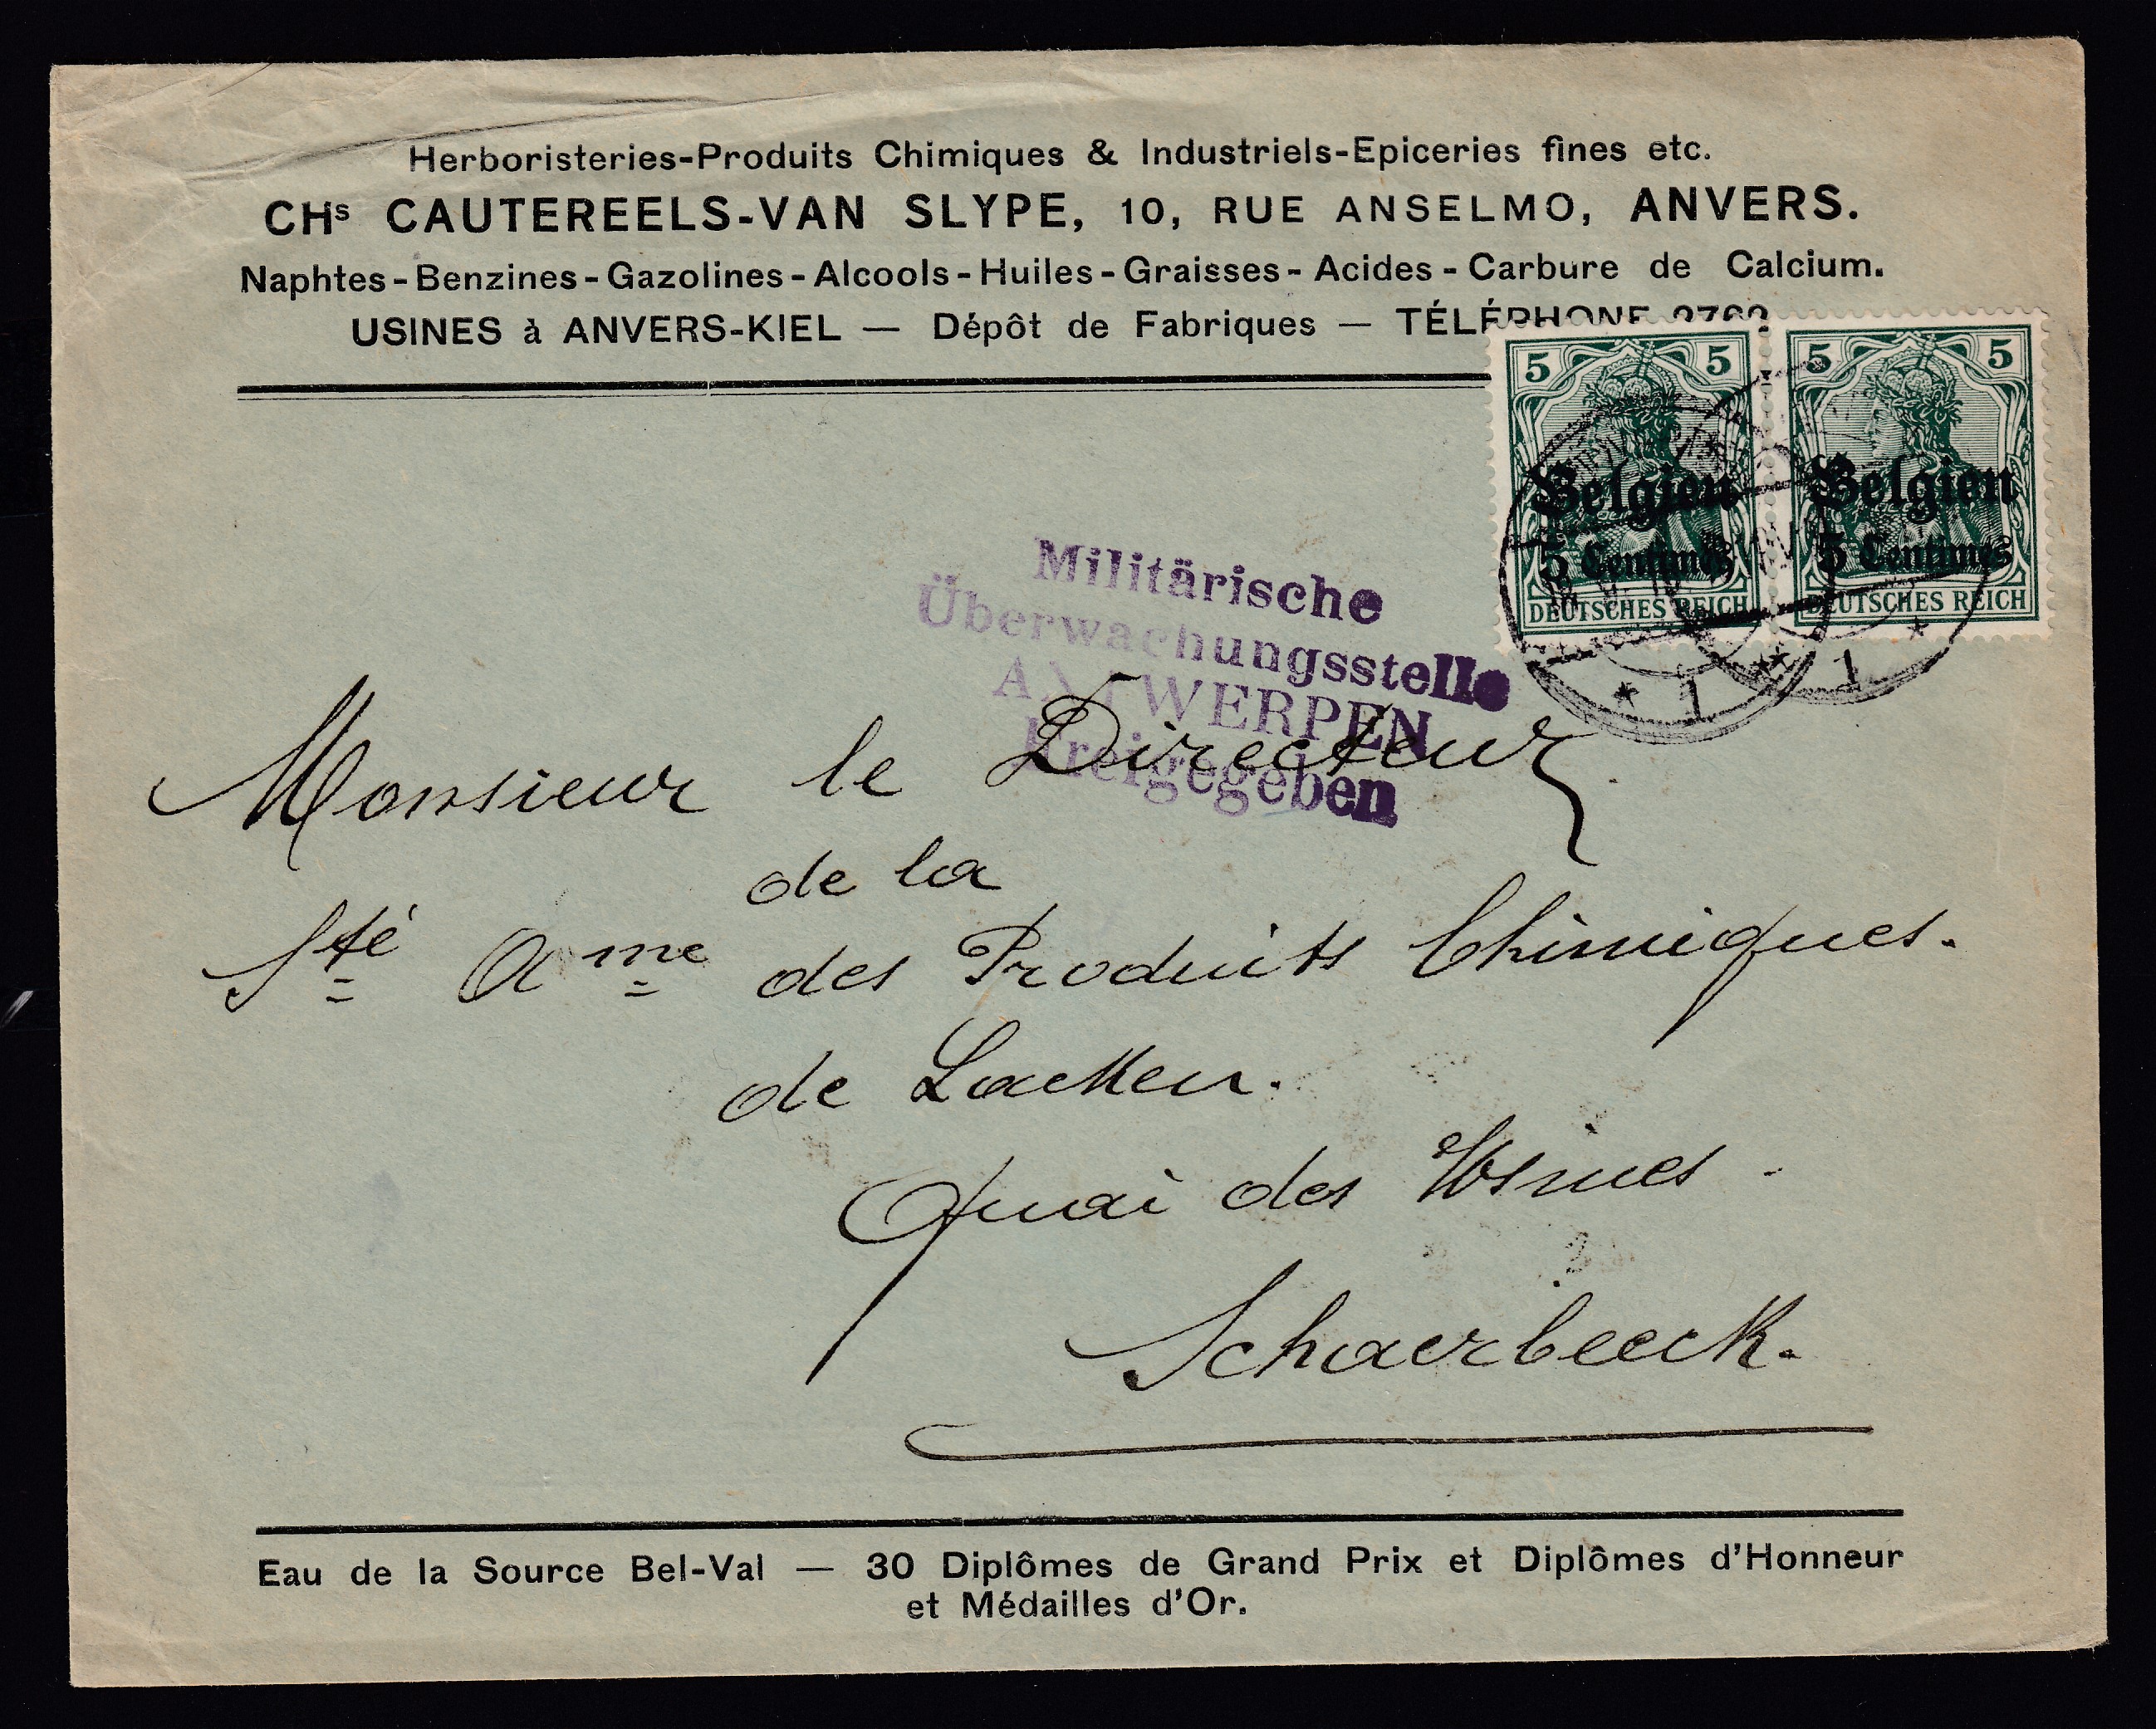 Herboristeries-Produits Chimiques & Industriels-Epiceries fines etc.
CHs CAUTEREELS-VAN SLYPE, 10, RUE ANSELMO, ANVERS.
Naphtes - Benzines - Gazolines - Alcools - Huiles - Graisses - Acides - Carbure de Calcium.
USINES à ANVERS-KIEL — Dépôt de Fabriques — TÉLÉPHONE
5 5
Belgien
5 Centimes
DEUTSCHES REICH
5 5
Belgien
5 Centimes
DEUTSCHES REICH
* 1 *
* 1 *
Militärische
Überwachungsstelle
ANTWERPEN
Freigegeben
Monsieur le Directeur
de la
Sté Ame des Produits Chimiques.
de Laeken.
Quai des Usines.
Schaerbeeck.
Eau de la Source Bel-Val — 30 Diplômes de Grand Prix et Diplômes d'Honneur
et Médailles d'Or.